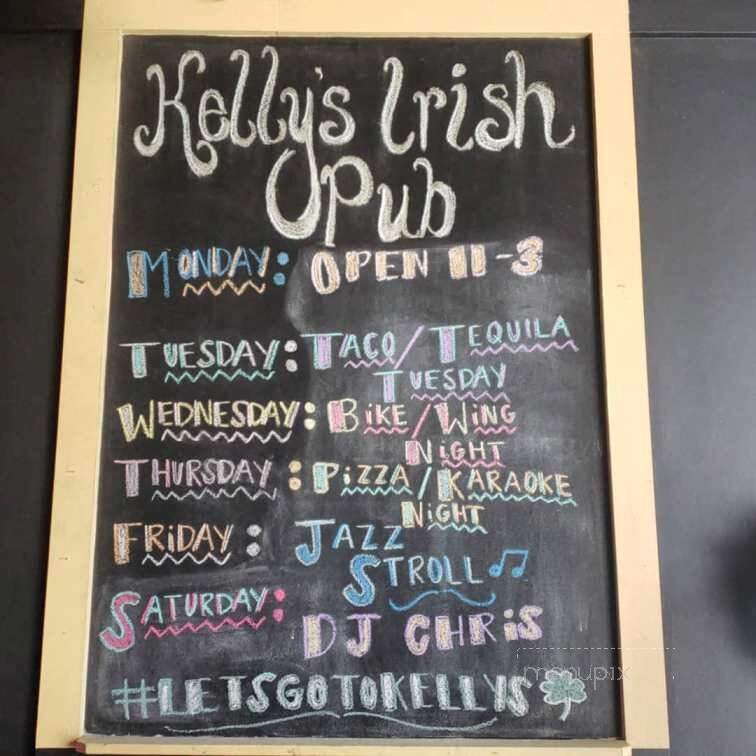 Kelly's Irish
Pub
MONDAY: OPEN 11-3
TUESDAY: TACO/TEQUILA
TUESDAY
WEDNESDAY: BiKE/WiNG
NiGHT
THURSDAY: PiZZA/KARAOKE
NiGHT
FRiDAY: JAZZ
STROLL
SATURDAY:
DJ CHRiS
#LETSGOTOKELLYS
menupix